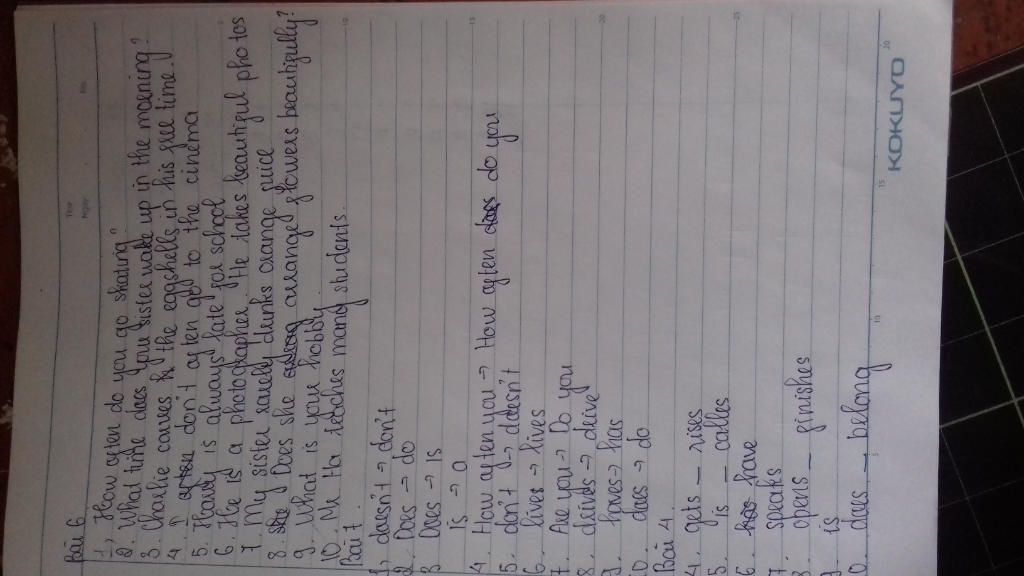 Bài 6
1, How often do you go skating?
2. What time does you sister wake up in the morning?
3. Charlie carves the eggshells in his free time.
4 I don't often go to the cinema
5. Harry is always late for school
6. He is a photographer. He takes beautiful photos
7. My sister rarely drinks orange juice
8. Does she arrange flowers beautifully?
9. What is your hobby
10. Mr Ha teaches many students.
Bài 7.
1, doesn't → don't
2. Does → do
3 Does → is
is → a
4. How often you → How often do you
5. don't → doesn't
6. lives → lives
7. Are you → Do you
8. drives → drive
9. haves → has
10. does → do
Bài 4.
4. gets _ rises
5. is _ calles
6. have
7 speaks
8. opens _ finishes
9 is
10. does _ belong
KOKUYO